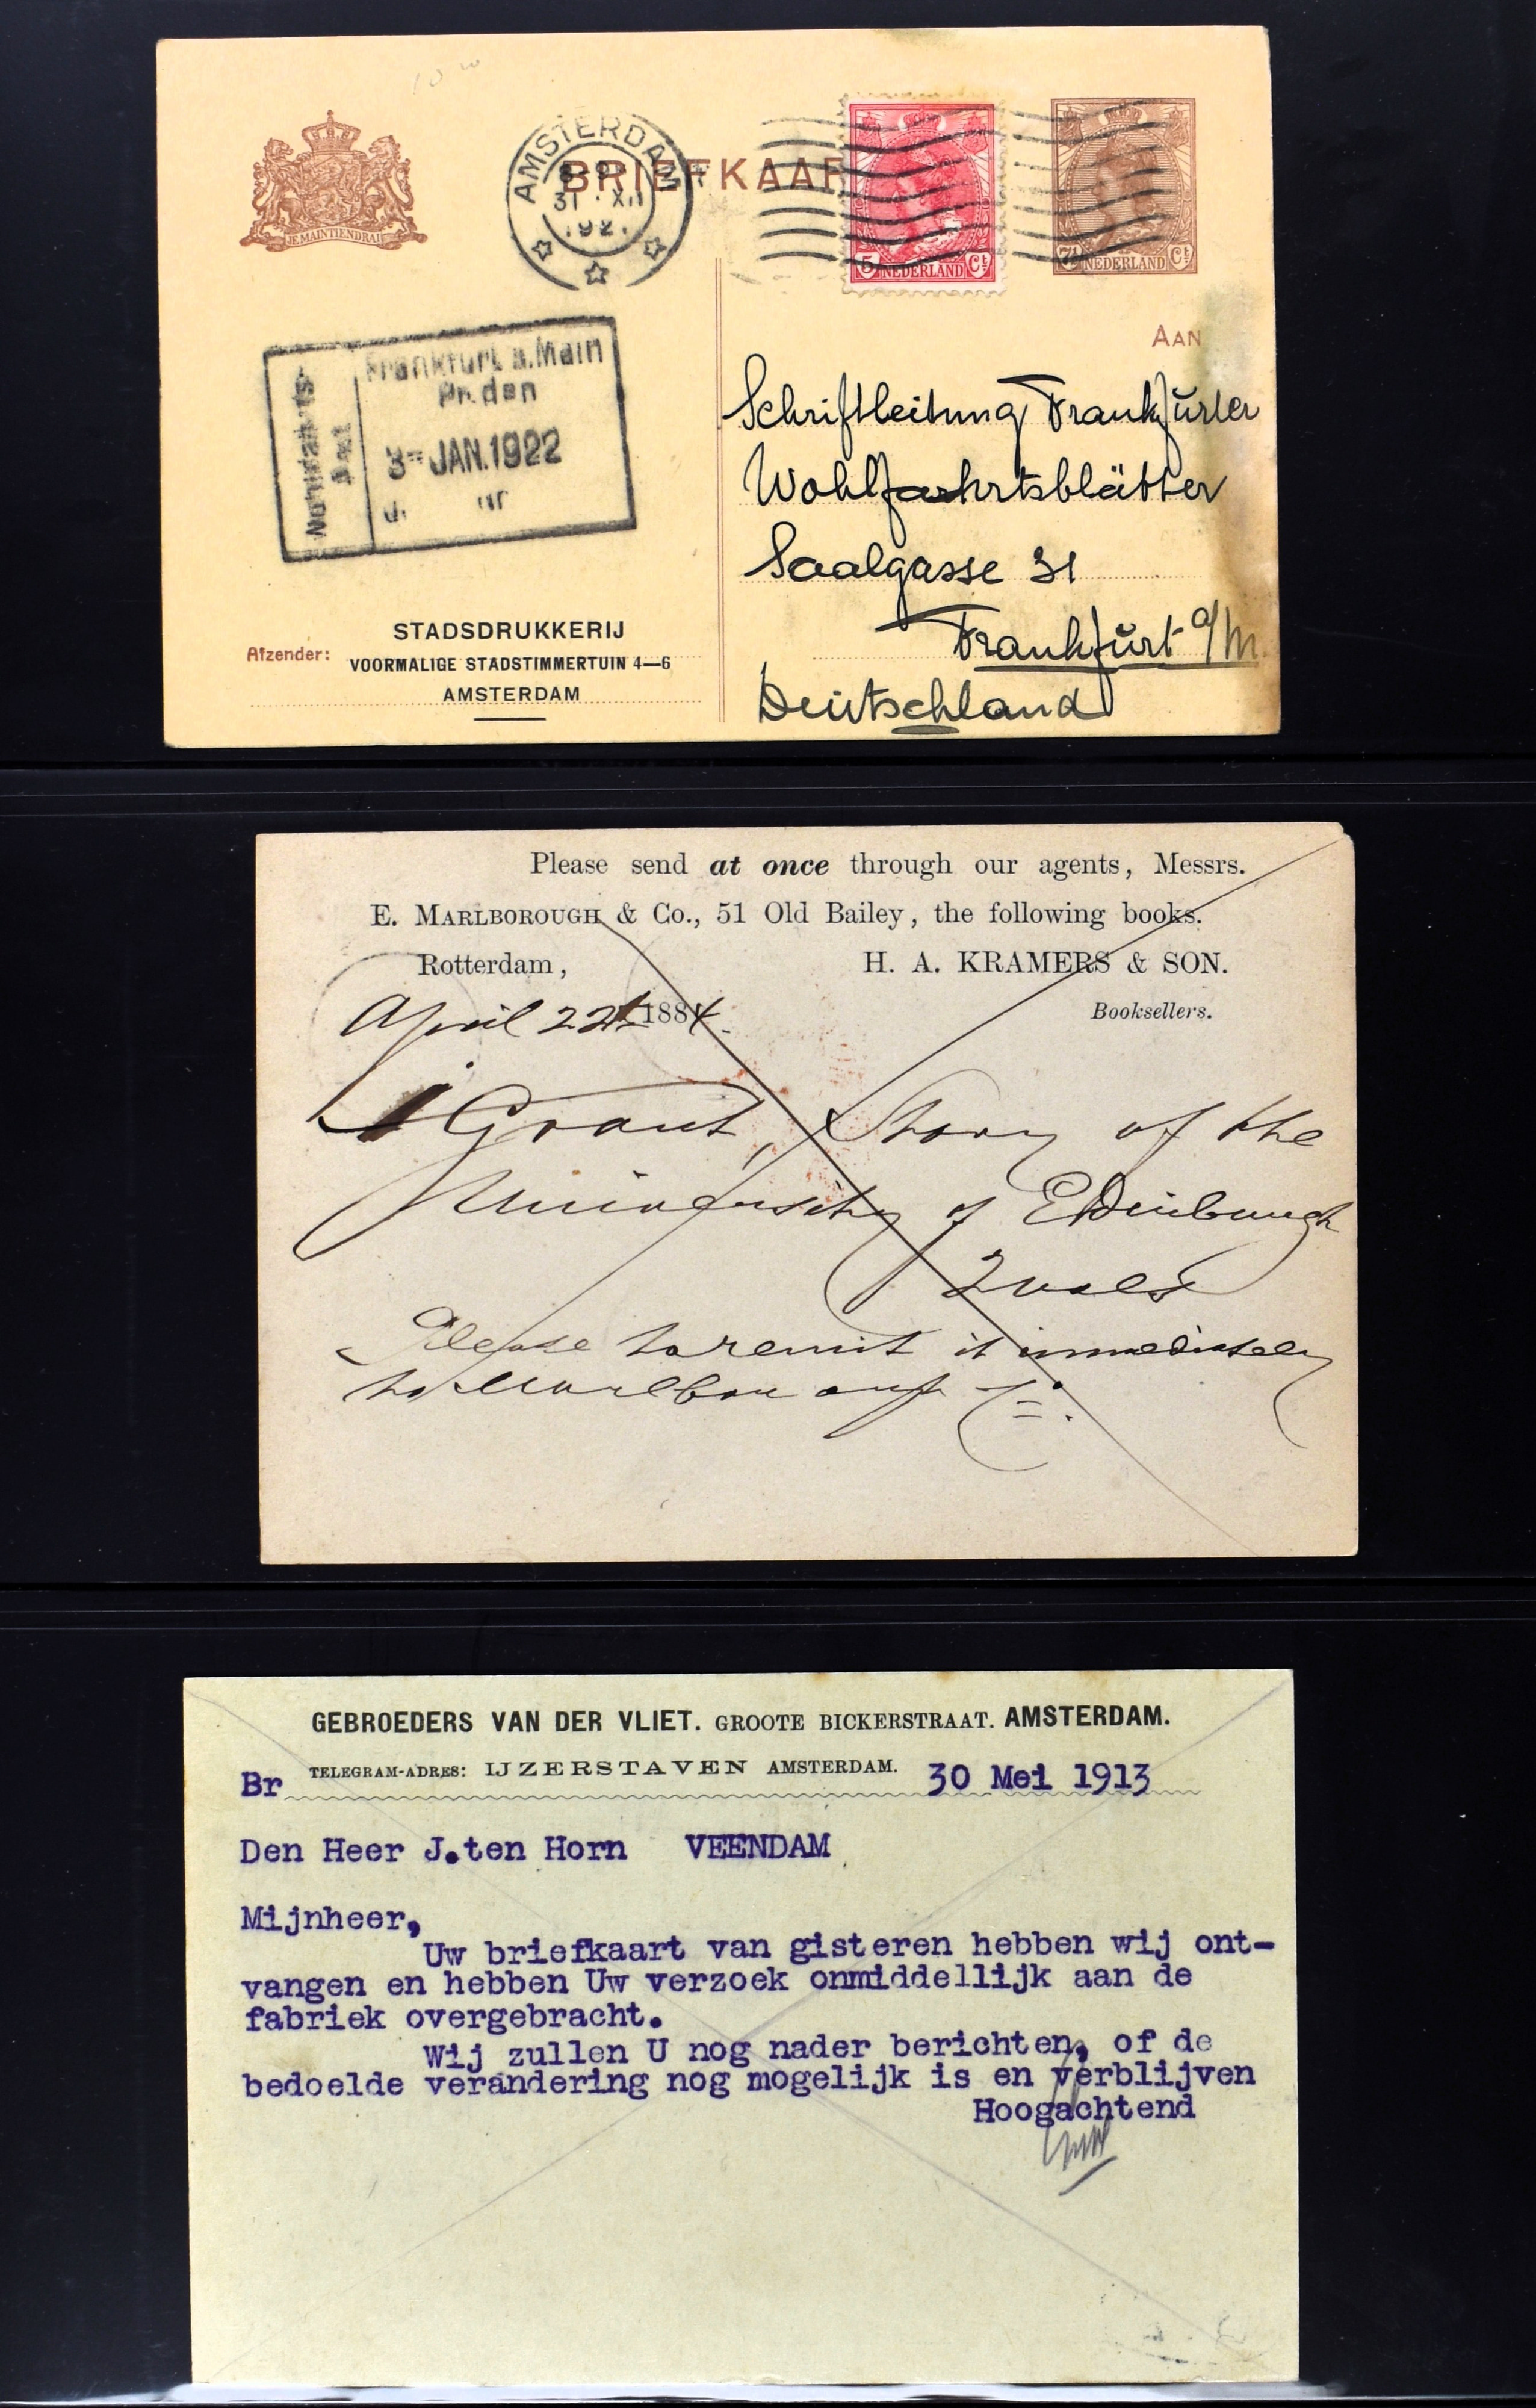 BRIEFKAAR
JE MAINTIENDRAI
AMSTERDAM
31 XII
192
5 NEDERLAND Ct
7½ NEDERLAND Ct
AAN
Frankfurt a. Main
3- JAN. 1922
Schriftleitung Frankfurter
Wohlfahrtsblätter
Saalgasse 31
Frankfurt a/M.
Deutschland
STADSDRUKKERIJ
Afzender: VOORMALIGE STADSTIMMERTUIN 4—6
AMSTERDAM
Please send at once through our agents, Messrs.
E. MARLBOROUGH & Co., 51 Old Bailey, the following books.
Rotterdam, H. A. KRAMERS & SON.
April 22th 1884. Booksellers.
1 Grant, Story of the
University of Edinburgh
2 vols
Please to remit it immediately
to
GEBROEDERS VAN DER VLIET. GROOTE BICKERSTRAAT. AMSTERDAM.
TELEGRAM-ADRES: IJZERSTAVEN AMSTERDAM.
Br 30 Mei 1913
Den Heer J.ten Horn VEENDAM
Mijnheer,
Uw briefkaart van gisteren hebben wij ont-
vangen en hebben Uw verzoek onmiddellijk aan de
fabriek overgebracht.
Wij zullen U nog nader berichten, of de
bedoelde verandering nog mogelijk is en verblijven
Hoogachtend